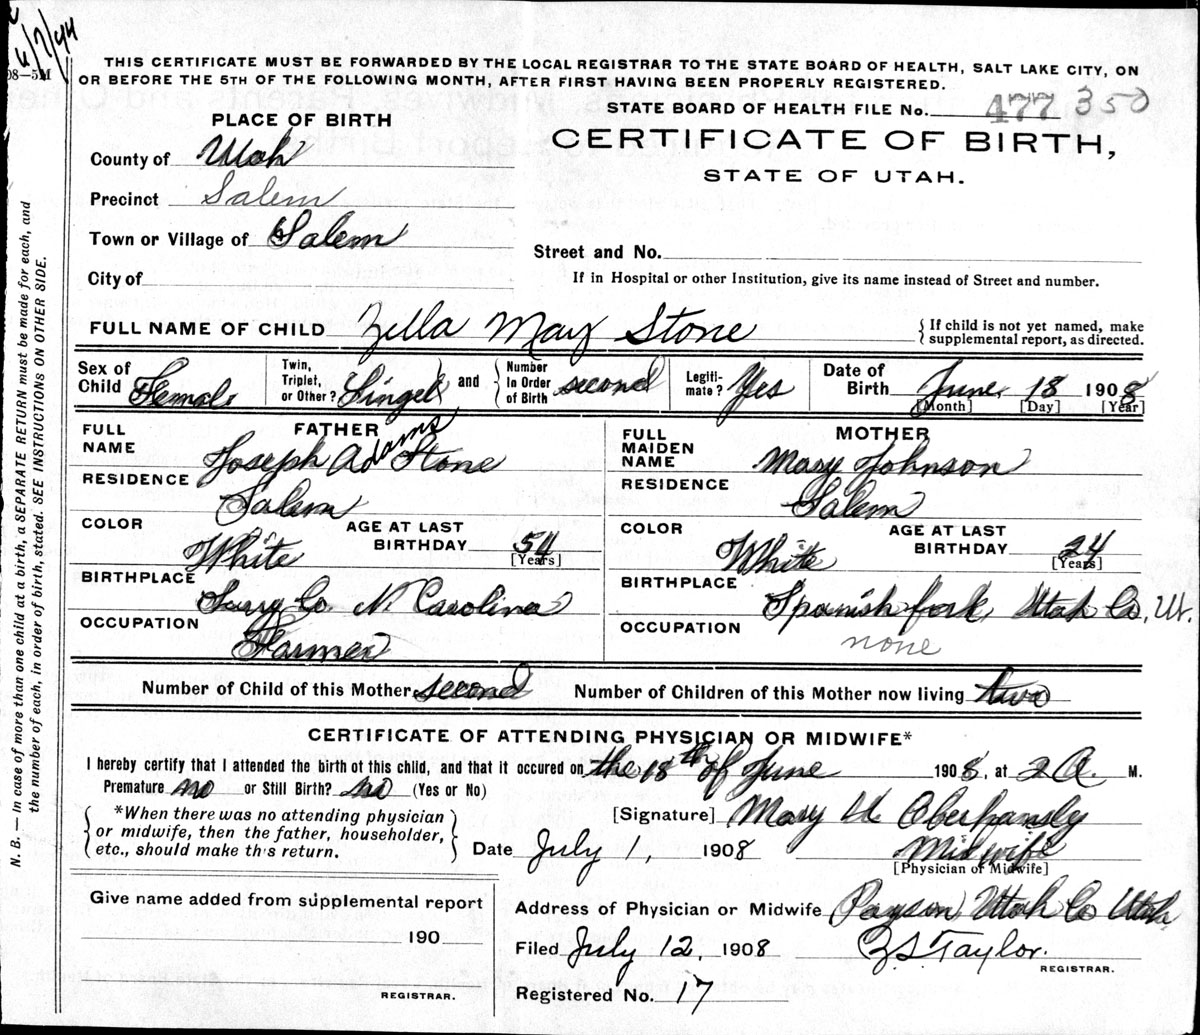 6/7/44
08—5M
THIS CERTIFICATE MUST BE FORWARDED BY THE LOCAL REGISTRAR TO THE STATE BOARD OF HEALTH, SALT LAKE CITY, ON
OR BEFORE THE 5TH OF THE FOLLOWING MONTH, AFTER FIRST HAVING BEEN PROPERLY REGISTERED.
STATE BOARD OF HEALTH FILE No. 477 350
PLACE OF BIRTH
CERTIFICATE OF BIRTH,
STATE OF UTAH.
County of Utah
Precinct Salem
Town or Village of Salem
Street and No.
City of
If in Hospital or other Institution, give its name instead of Street and number.
FULL NAME OF CHILD Zella May Stone {If child is not yet named, make
supplemental report, as directed.
Sex of Child Female Twin, Triplet, or Other? Singel and Number In Order of Birth second Legiti-mate? Yes Date of Birth June 18 1908
[Month] [Day] [Year]
FATHER MOTHER
FULL NAME Joseph Adams Stone FULL MAIDEN NAME Mary Johnson
RESIDENCE Salem RESIDENCE Salem
COLOR White AGE AT LAST BIRTHDAY 54 [Years] COLOR White AGE AT LAST BIRTHDAY 24 [Years]
BIRTHPLACE Surry Co N Carolina BIRTHPLACE Spanish fork, Utah Co, Ut.
OCCUPATION Farmer OCCUPATION none
Number of Child of this Mother second Number of Children of this Mother now living two
CERTIFICATE OF ATTENDING PHYSICIAN OR MIDWIFE*
I hereby certify that I attended the birth of this child, and that it occured on the 18th of June 1908, at 2 A. M.
Premature no or Still Birth? no (Yes or No)
*When there was no attending physician
or midwife, then the father, householder,
etc., should make this return.
[Signature] Mary U Oberhansly
Date July 1, 1908 Midwife
[Physician or Midwife]
Give name added from supplemental report
190
REGISTRAR.
Address of Physician or Midwife Payson, Utah Co Utah
Filed July 12, 1908 Taylor.
REGISTRAR.
Registered No. 17
N. B. — In case of more than one child at a birth, a SEPARATE RETURN must be made for each, and
the number of each, in order of birth, stated. SEE INSTRUCTIONS ON OTHER SIDE.